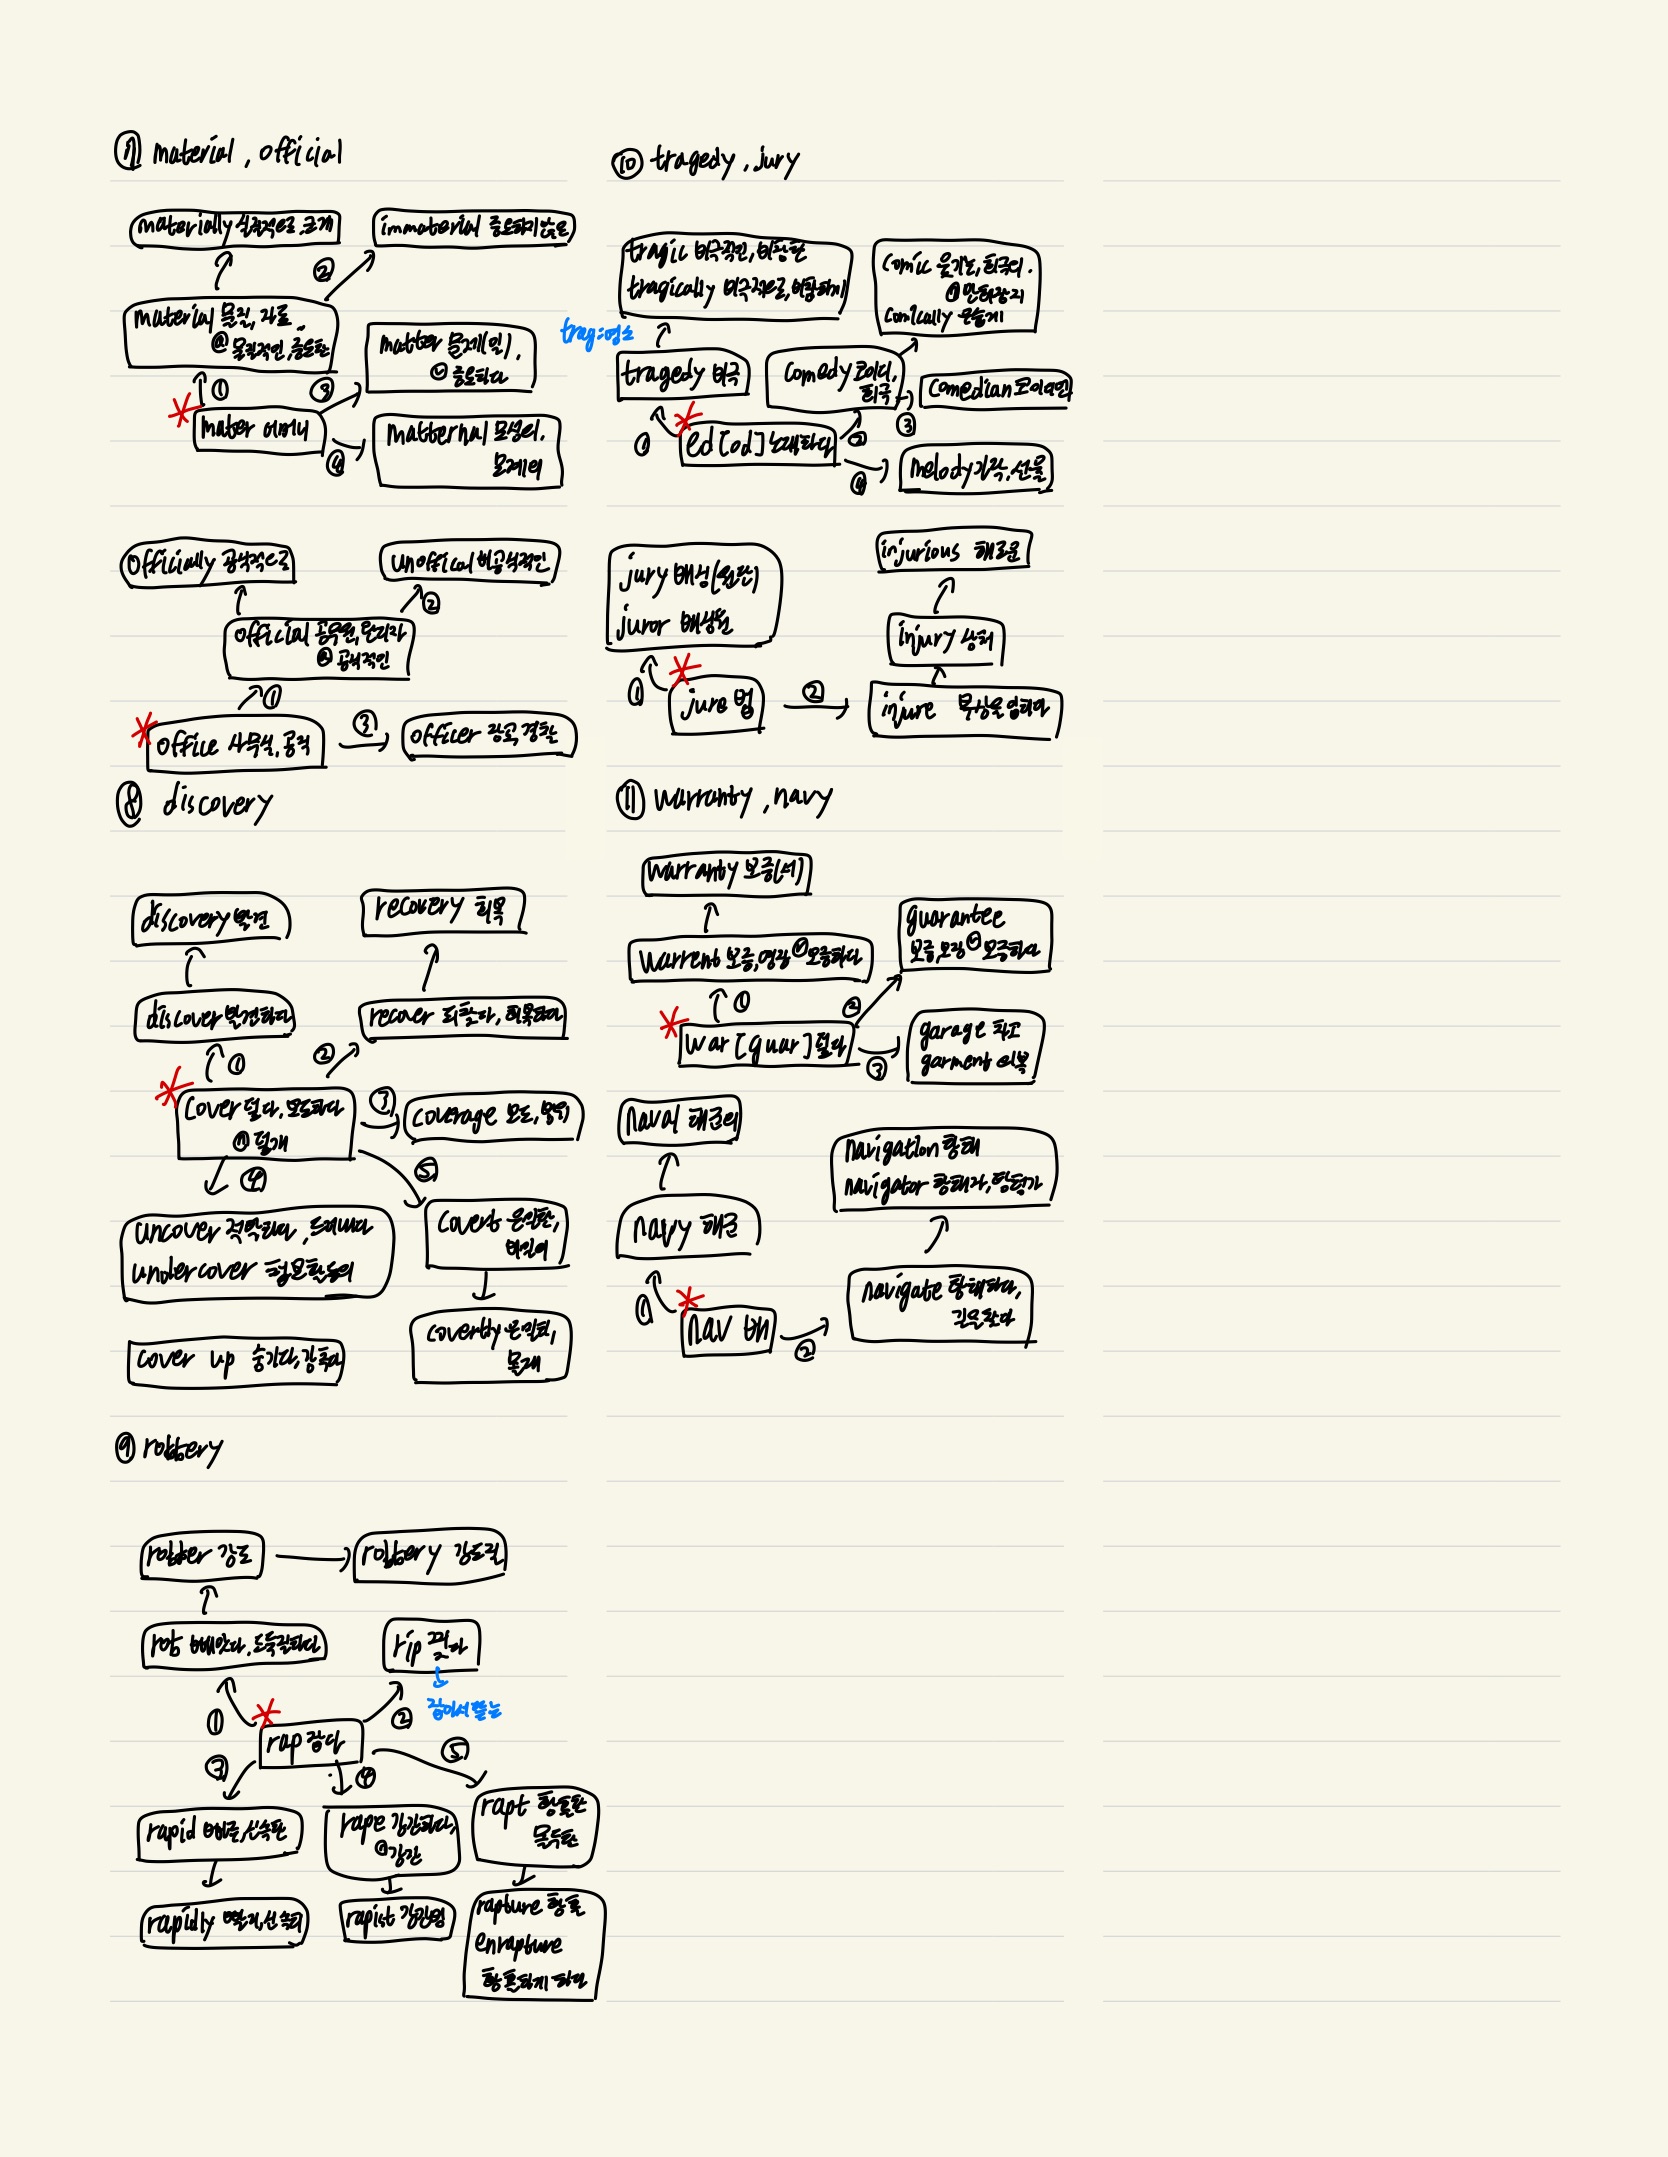 ⑦ material, official
materially 실질적으로, 크게
immaterial 중요하지않은
②
material 물질, 자료
ⓐ 물질적인, 중요한
matter 문제(일),
ⓥ 중요하다
① ③
mater 어머니
④
matternal 모성의,
모계의
officially 공식적으로
unofficial 비공식적인
②
official 공무원, 관리자
ⓐ 공식적인
①
office 사무실, 공직
③
officer 장교, 경찰
⑧ discovery
discovery 발견
recovery 회복
discover 발견하다
recover 되찾다, 회복하다
① ②
cover 덮다, 보도하다
ⓝ 덮개
③
coverage 보도, 범위
④ ⑤
uncover 적발하다, 드러내다
undercover 첩보활동의
covert 은밀한,
비밀의
cover up 숨기다, 감추다
covertly 은밀히,
몰래
⑨ robbery
robber 강도
robbery 강도질
rob 빼앗다, 도둑질하다
rip 찢다
잡아서 뜯는
① ②
rap 잡다
③ ④ ⑤
rapid 빠른, 신속한
rape 강간하다,
ⓝ 강간
rapt 황홀한
몰두한
rapidly 빨리, 신속히
rapist 강간범
rapture 황홀
enrapture
황홀하게 하다
⑩ tragedy, jury
tragic 비극적인, 비참한
tragically 비극적으로, 비참하게
comic 웃기는, 희극의.
ⓝ 만화잡지
comically 우습게
trag:염소
tragedy 비극
comedy 코미디,
희극
comedian 코미디언
① ② ③
ed [od] 노래하다
④
melody 가락, 선율
jury 배심(원단)
juror 배심원
injurious 해로운
injury 상처
①
jure 법
②
injure 부상을 입히다
⑪ warranty, navy
warranty 보증(서)
warrent 보증, 영장 ⓥ 보증하다
guarantee
보증, 보장 ⓥ 보증하다
① ②
war [guar] 덮다
③
garage 차고
garment 의복
naval 해군의
navigation 항해
navigator 항해자, 탐험가
navy 해군
navigate 항해하다,
길을 찾다
①
nav 배
②